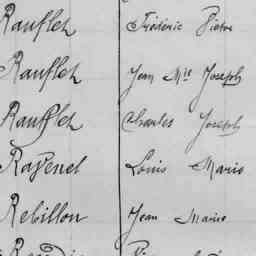 Rauflet Frédéric Pierre
Rauflet Jean Mie Joseph
Rauflet Charles Joseph
Ravenel Louis Marie
Rebillon Jean Marie